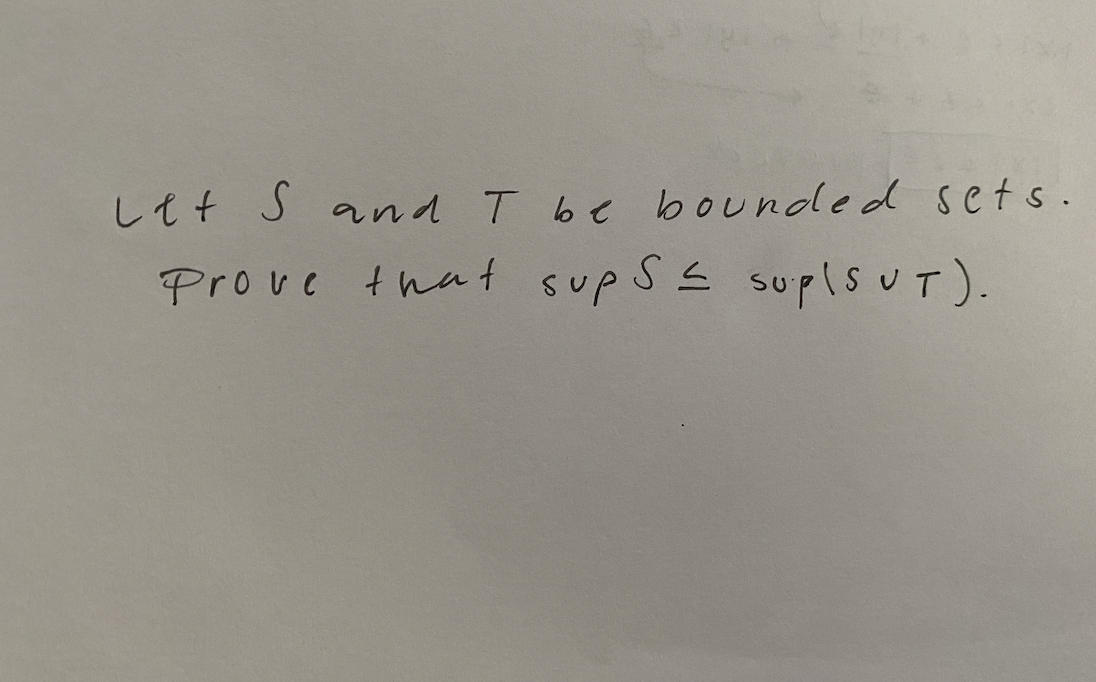 Let S and T be bounded sets.
Prove that sup S ≤ sup(S ∪ T).